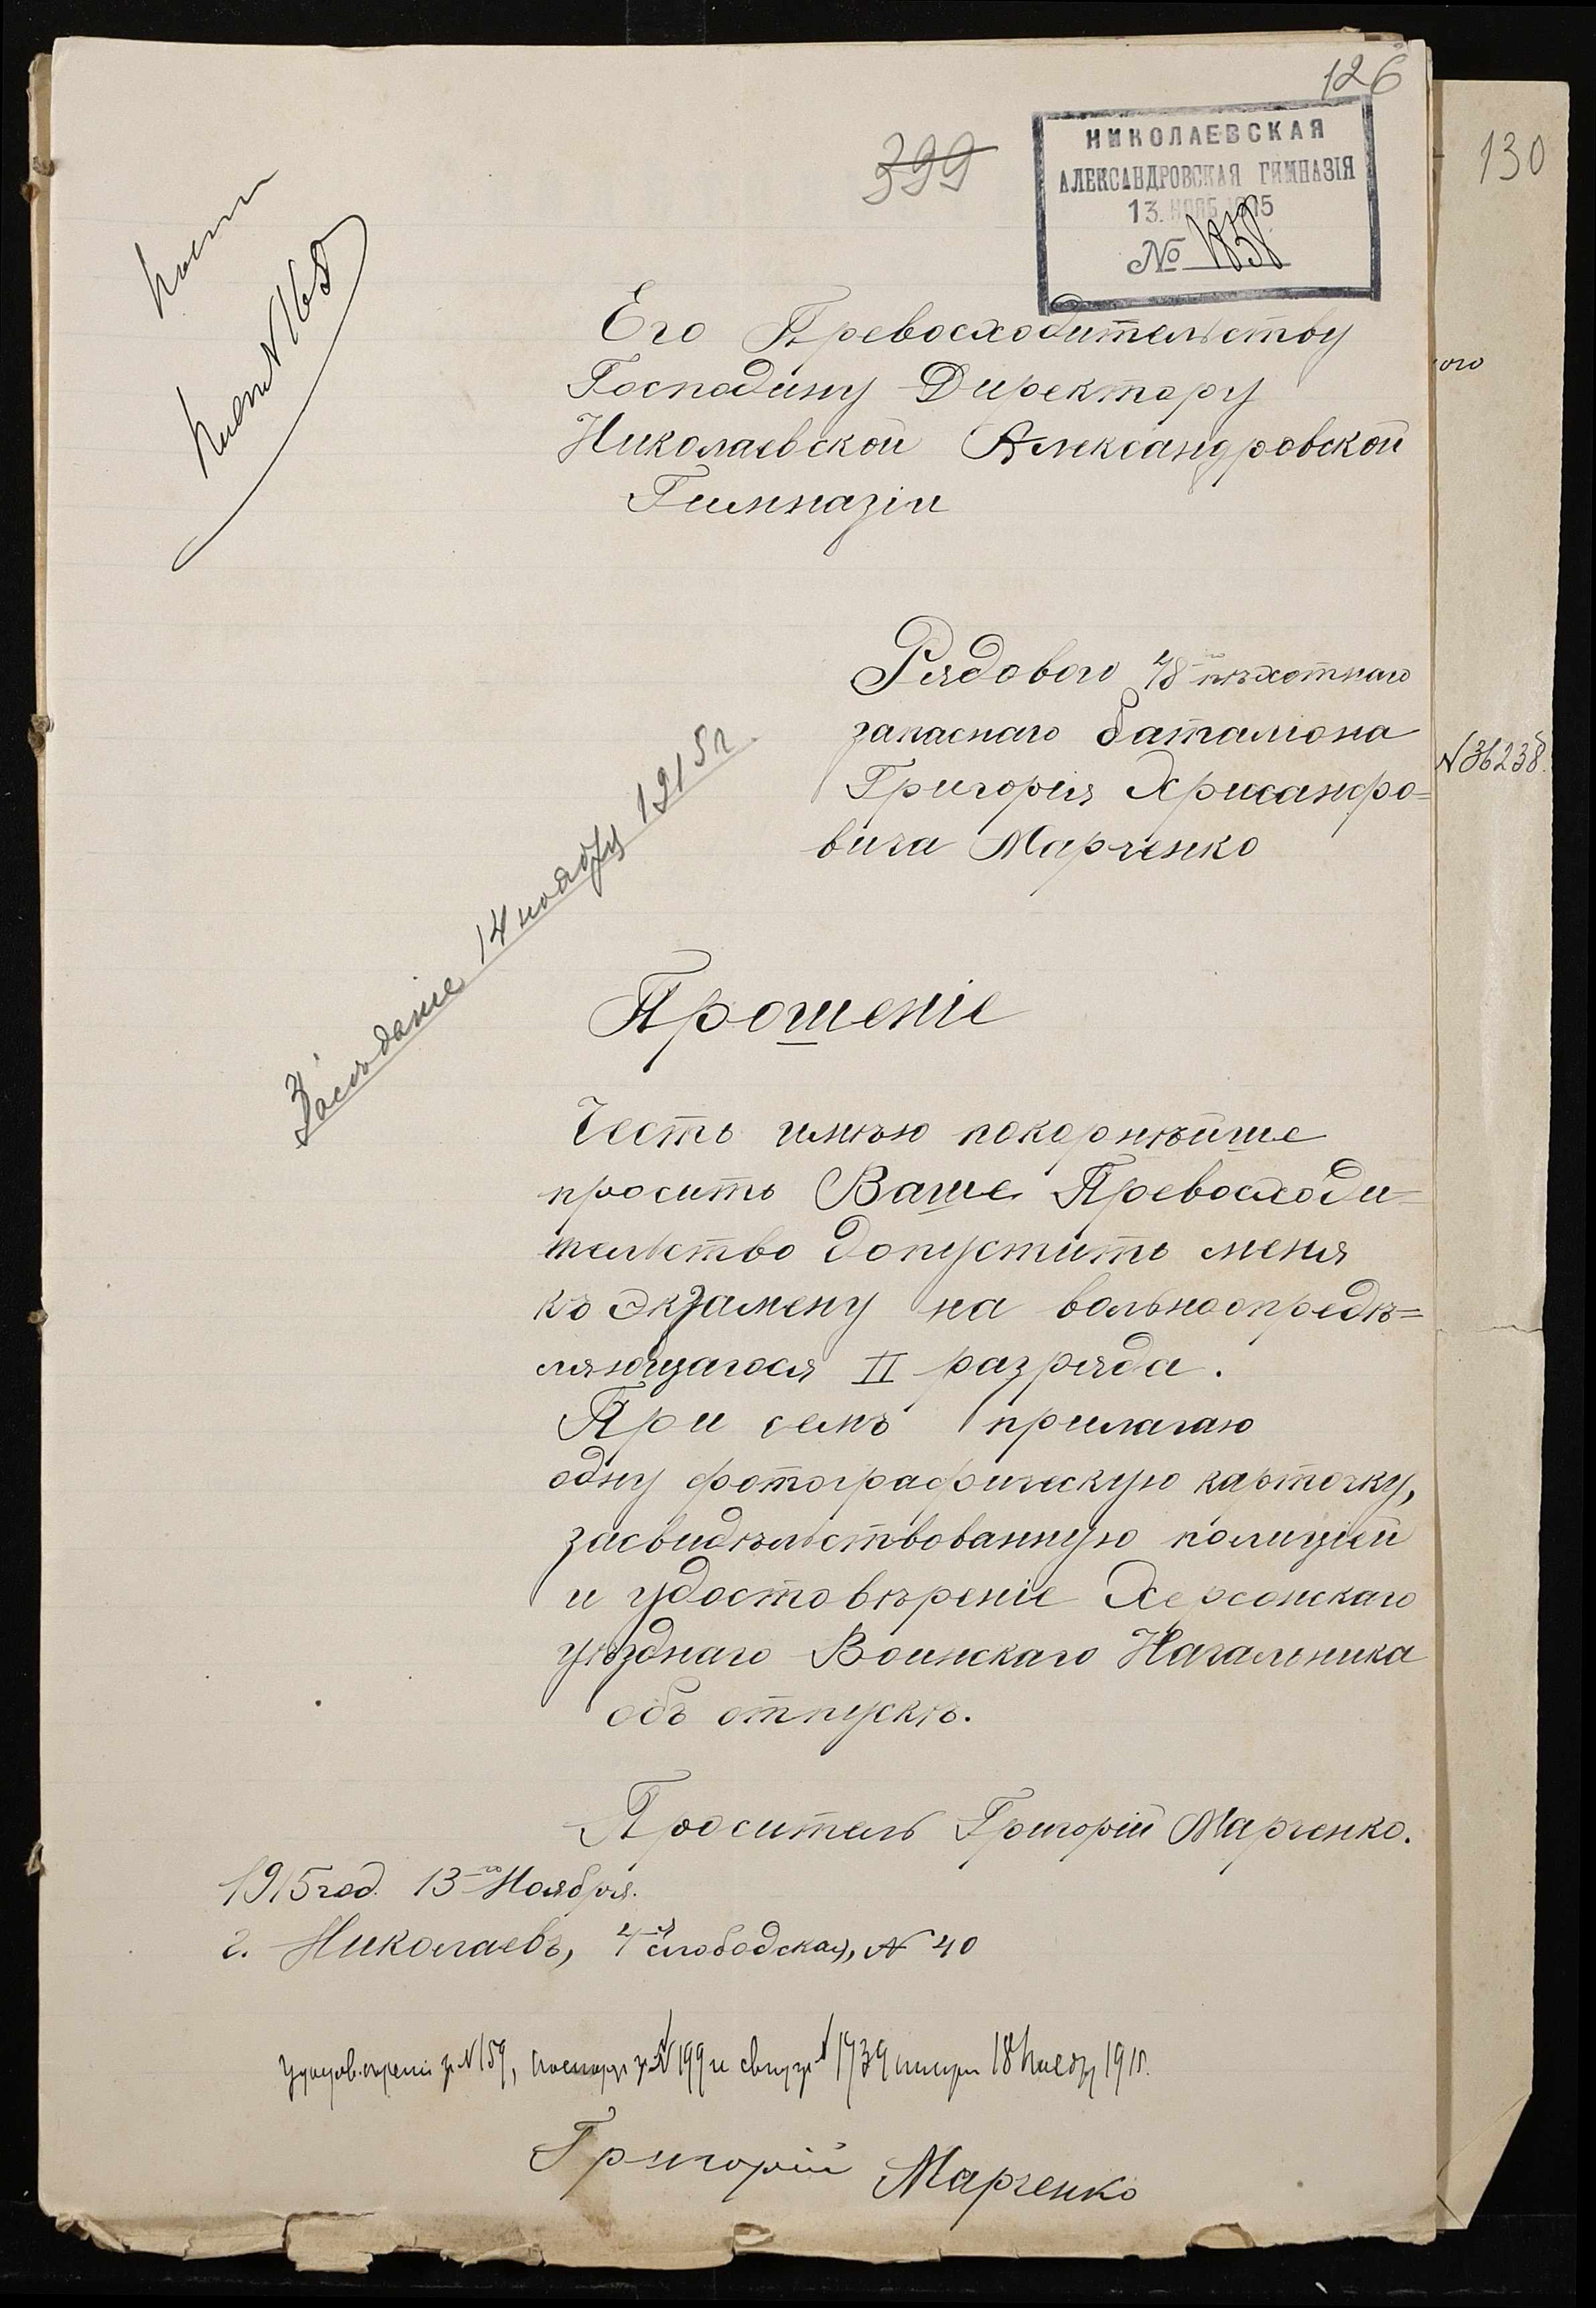 126
399
НИКОЛАЕВСКАЯ
АЛЕКСАНДРОВСКАЯ ГИМНАЗІЯ
13. НОЯБ 1915
№ 1858
130
Его Превосходительству
Господину Директору
Николаевской Александровской
Гимназіи
ого
Рядового 48го пѣхотнаго
запаснаго баталіона
Григорія Хрисанфо=
вича Марченко
N 36238.
Засѣданіе 14 ноября 1915 г.
Прошеніе
Честь имѣю покорнѣйше
просить Ваше Превосходи=
тельство допустить меня
къ экзамену на вольноопредѣ=
ляющагося II разряда.
При семъ прилагаю
одну фотографическую карточку,
засвидѣтельствованную полиціей
и удостовѣреніе Херсонскаго
уѣзднаго Воинскаго Начальника
объ отпускѣ.
Проситель Григорій Марченко.
1915 год. 13го Ноября.
г. Николаевъ, 4я слободская, N 40
N 159, N 199 и N 1739 18 1915.
Григорій Марченко